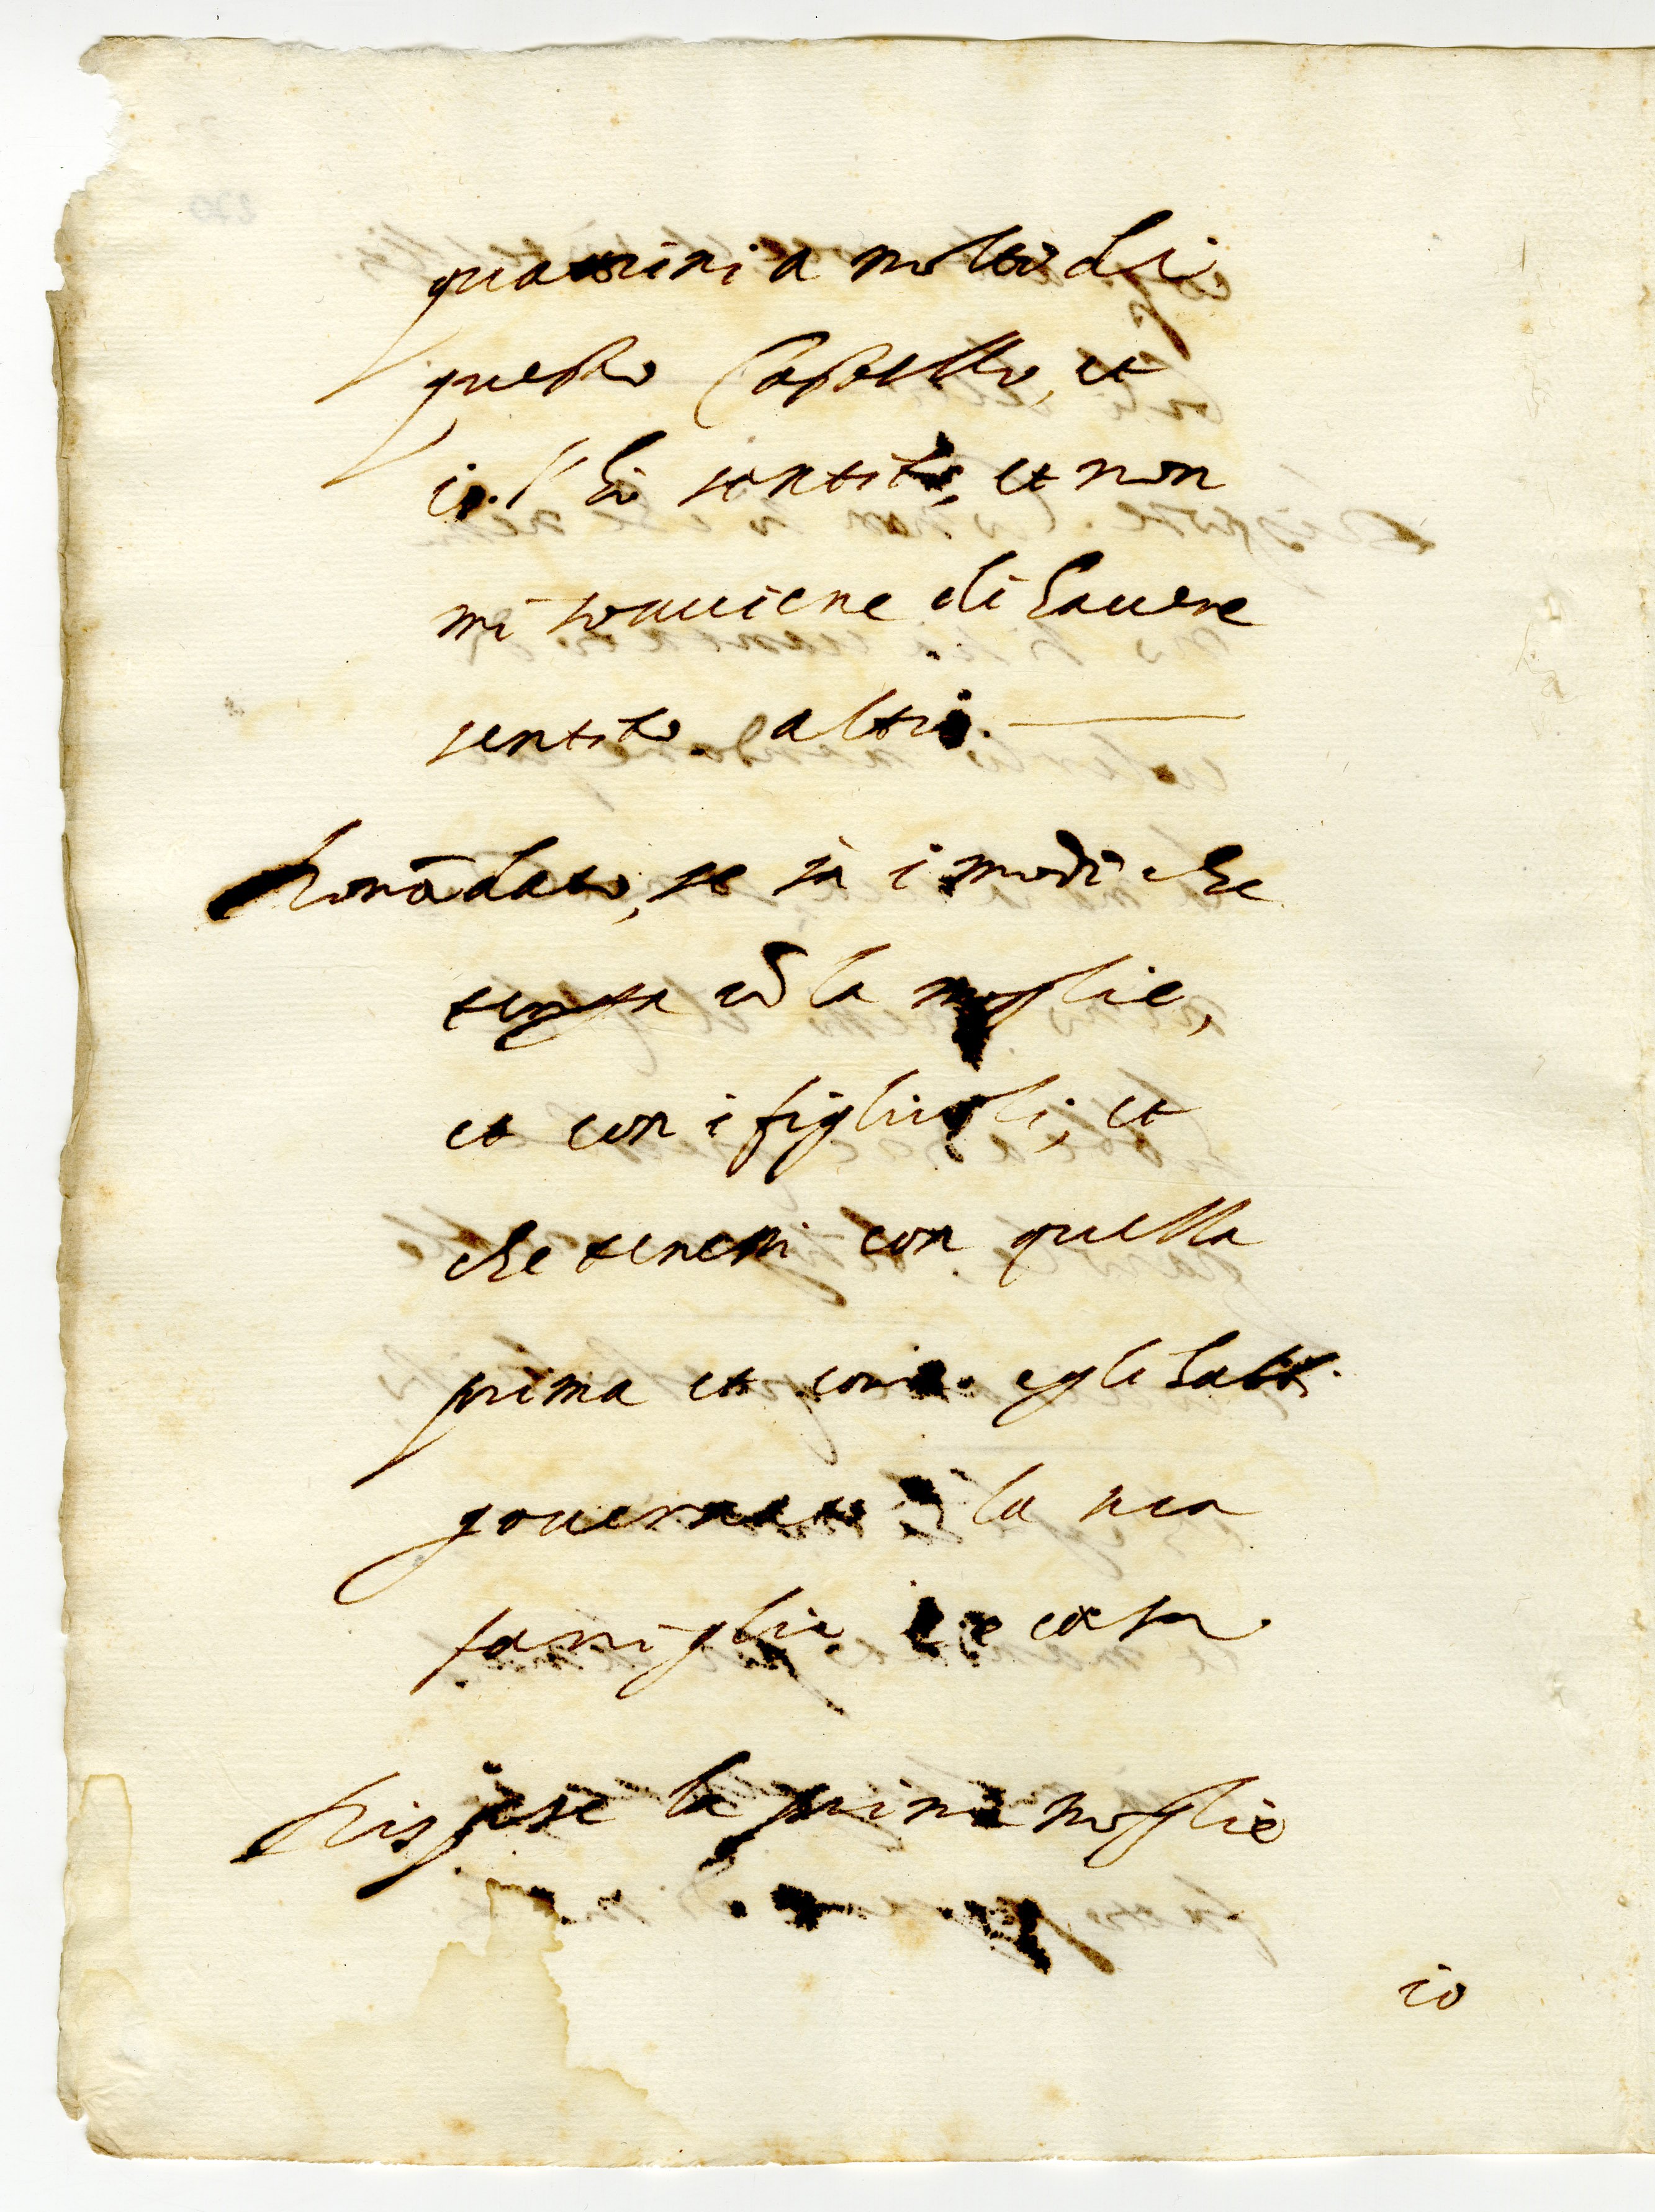 quattrini a molti di
questo Castello, et
io l'hò sentito, et non
mi souuiene di hauere
sentito altri.
Domādato, se sà i modi che
tenga cō la moglie,
et con i figliuoli, et
che tenessi con quella
prima et come egli habb.
gouernato la sua
famiglia e casa.
Rispose la prima moglie
io